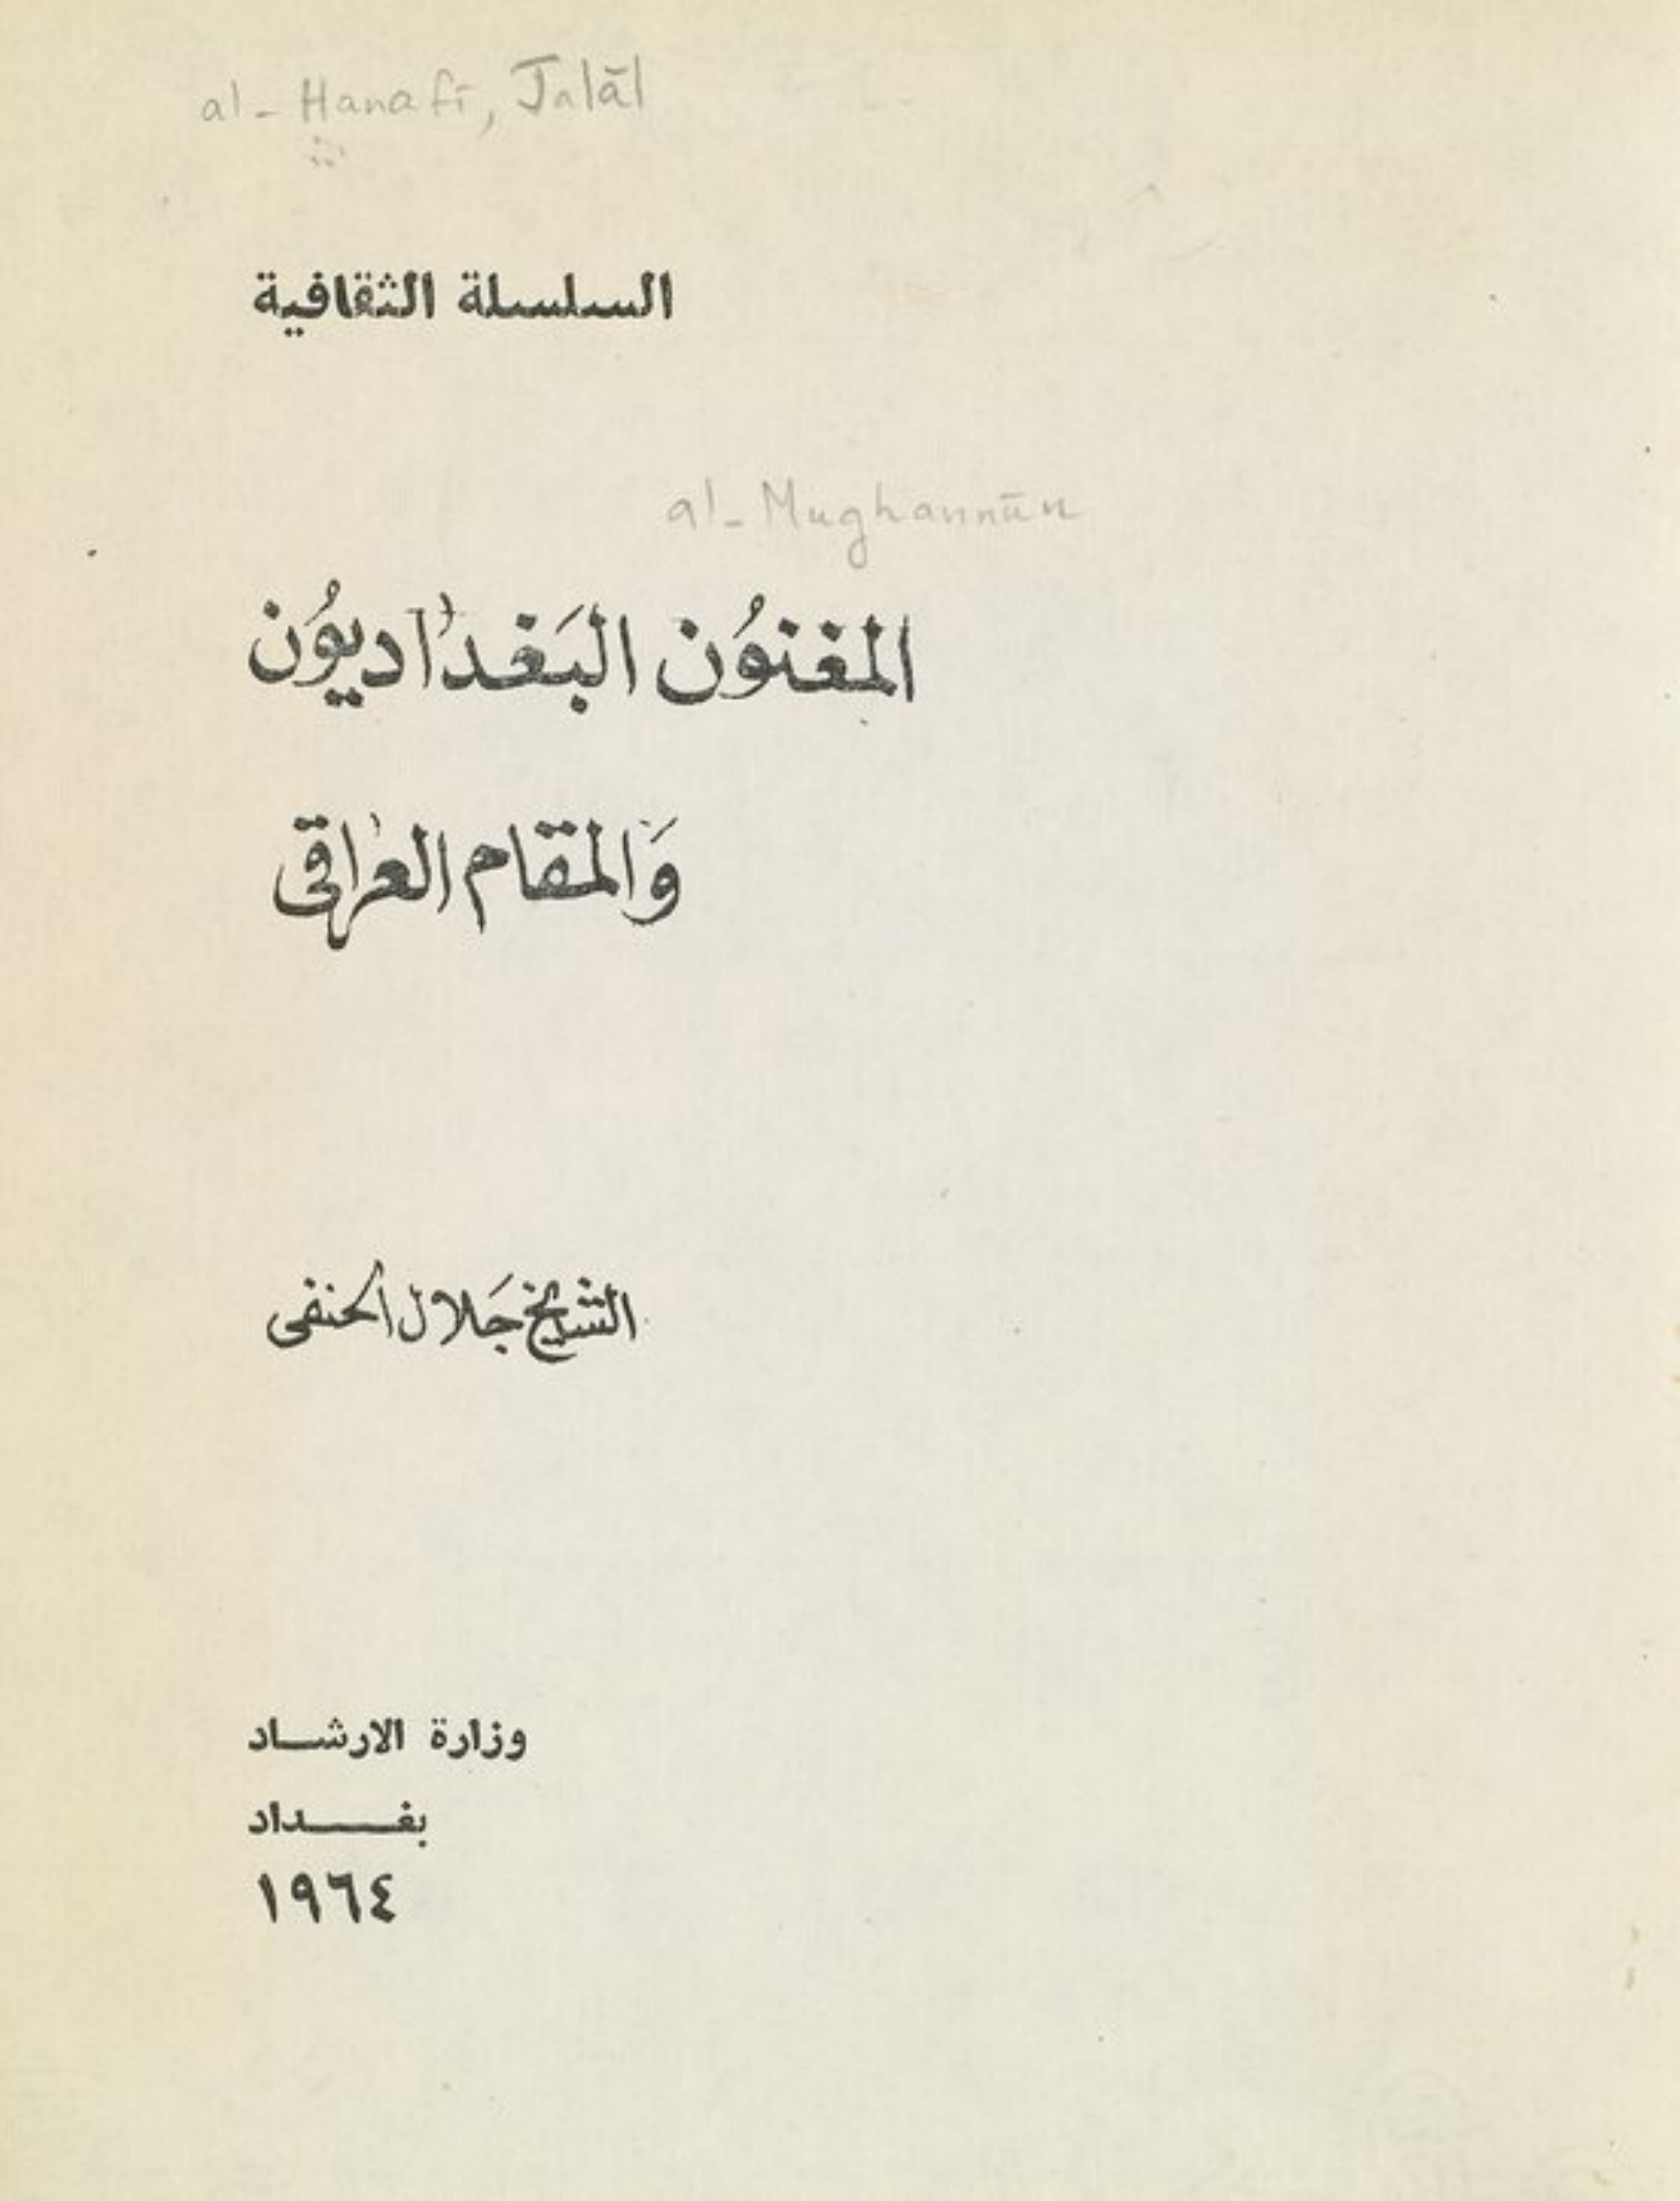 al-Hanafī, Jalāl
السلسلة الثقافية
al-Mughannūn
المغنوُن البَغداديوُن
وَالمقام العراقى
الشيخ جَلال الحنفى
وزارة الارشاد
بغداد
١٩٦٤